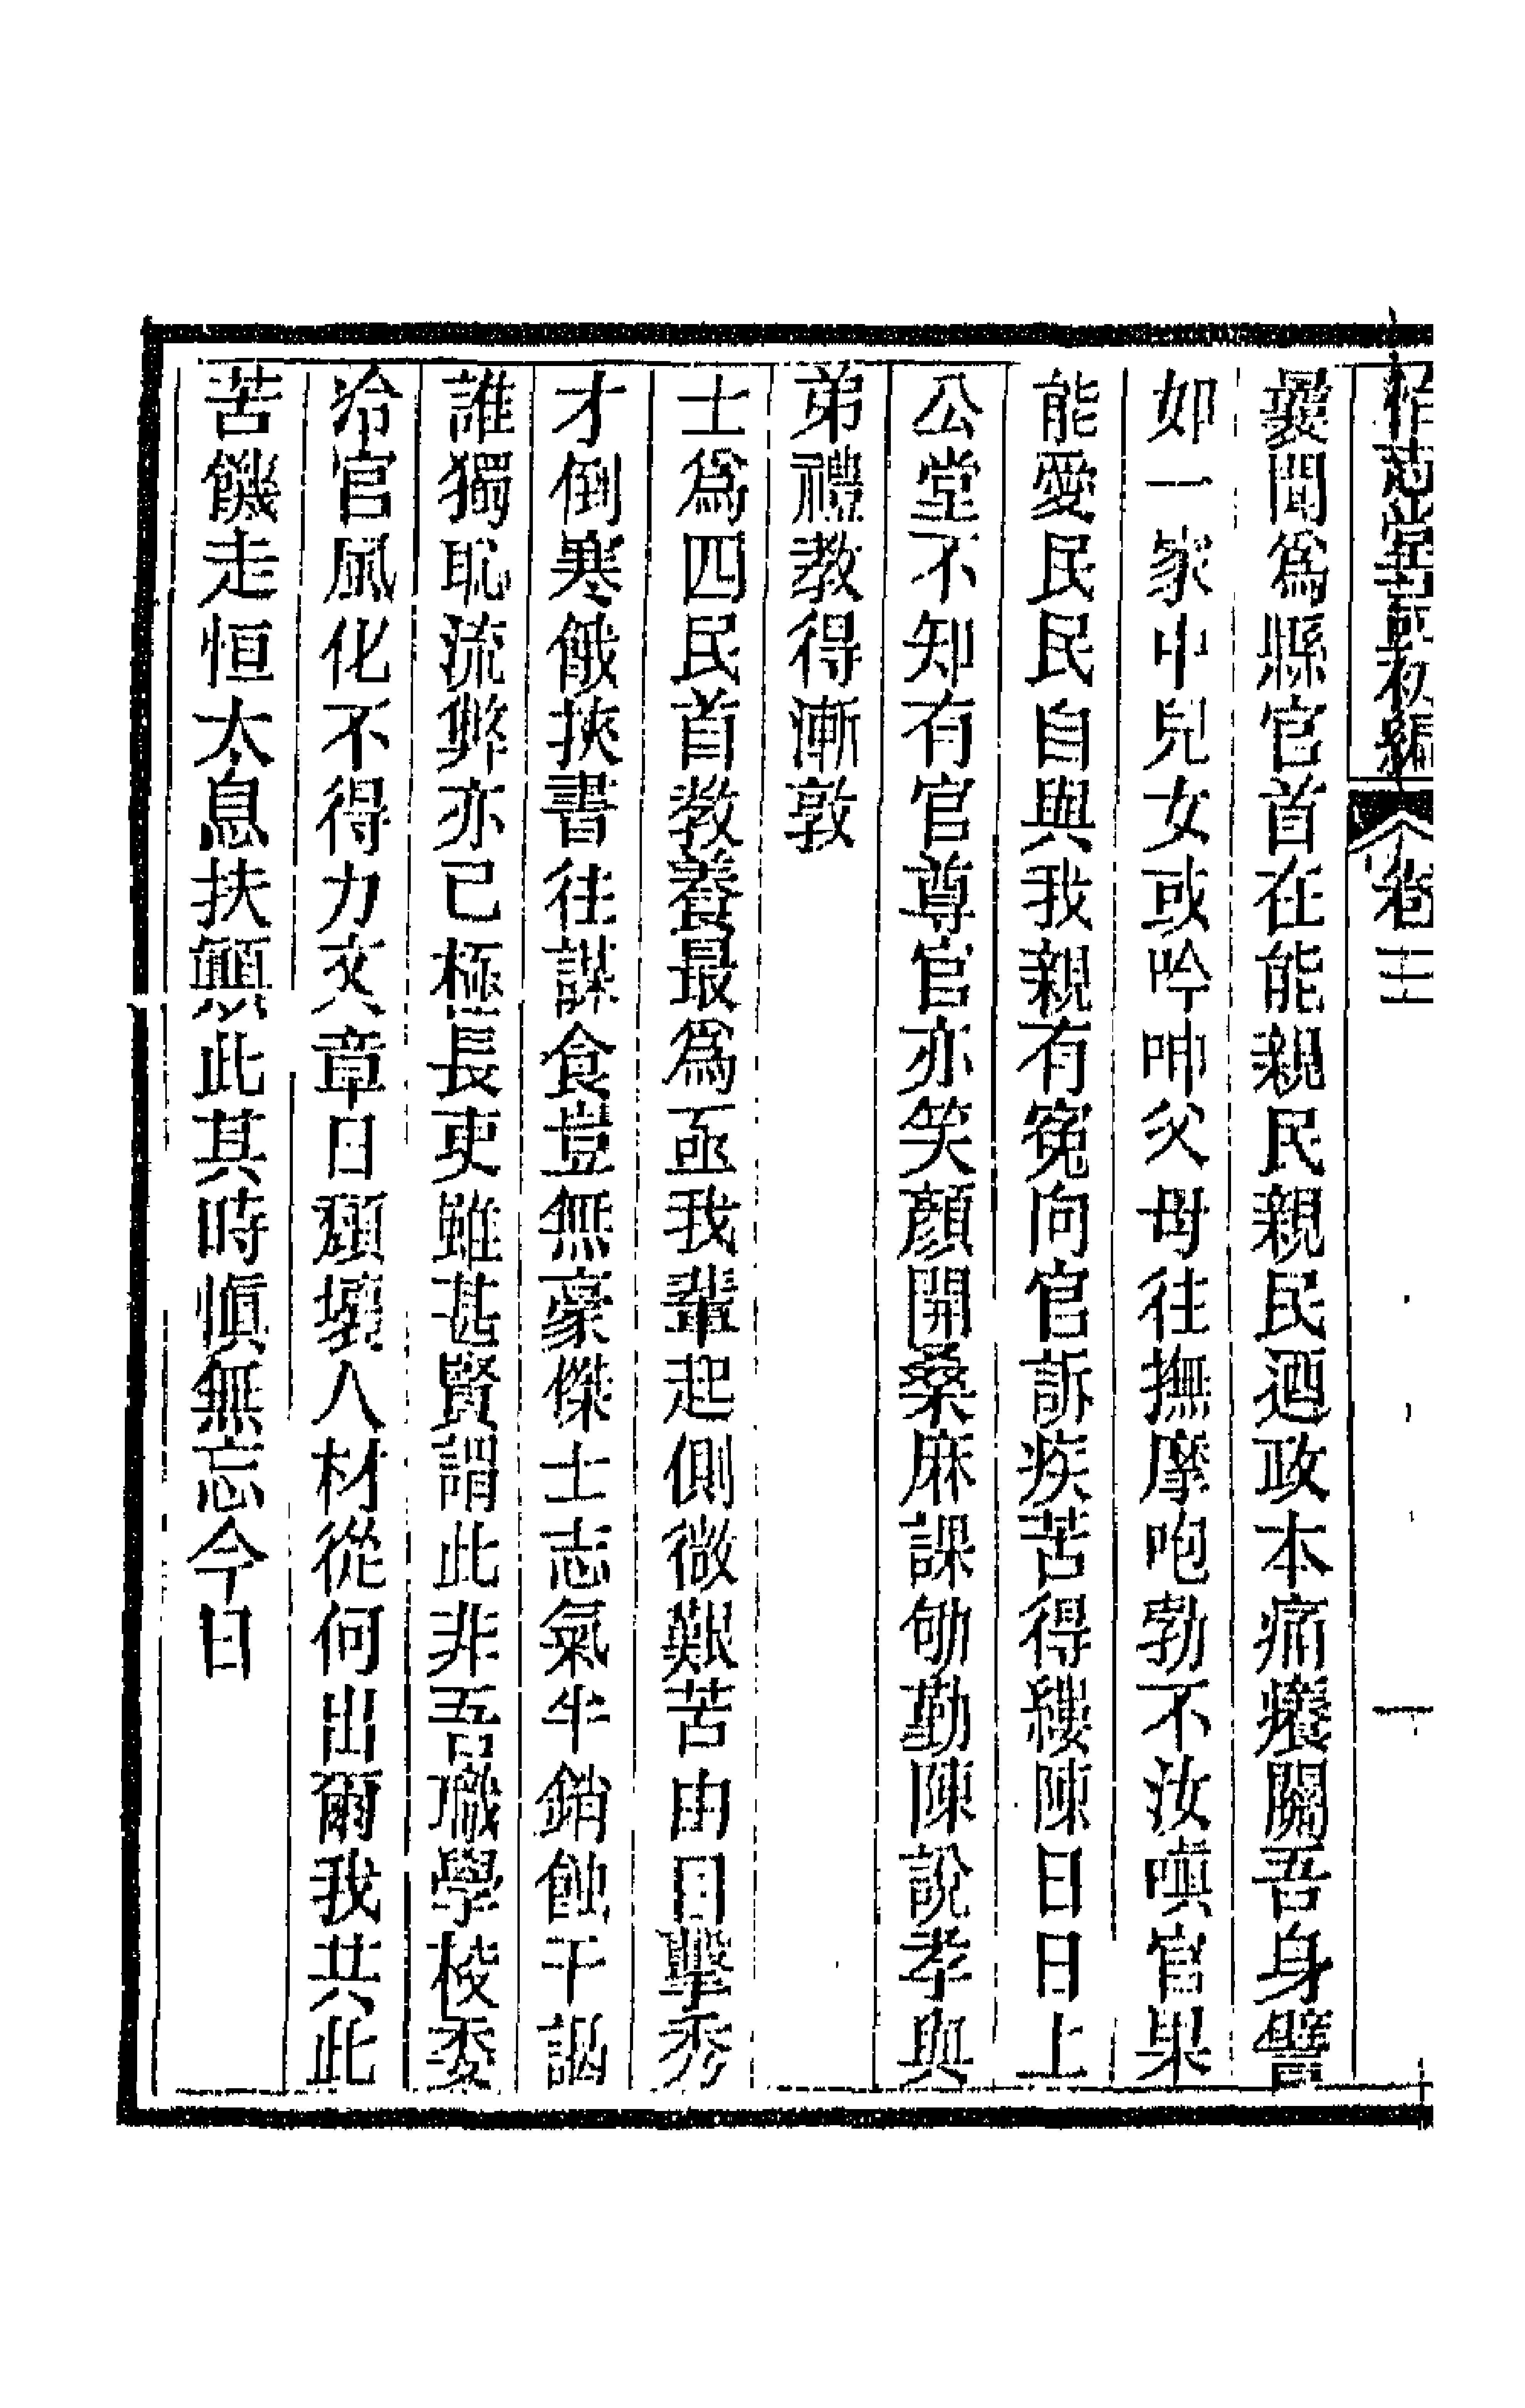 堂詩初編 卷三 一
曩聞爲縣官首在能親民親民迺政本痛癢關吾身譬
如一家中兒女或吟呻父母往撫摩咆勃不汝嗔官果
能愛民民自與我親有寃向官訴疾苦得縷陳日日上
公堂不知有官尊官亦笑顏開桑麻課劬勤陳說孝與
弟禮教得漸敦
士爲四民首教養最爲亟我輩起側微艱苦由目擊秀
才倒寒餓挾書往謀食豈無豪傑士志氣半銷蝕干謁
誰獨恥流弊亦已極長吏雖甚賢謂此非吾職學校委
冷官風化不得力文章日頹壞人材從何出爾我共此
苦饑走恒太息扶顛此其時愼無忘今日